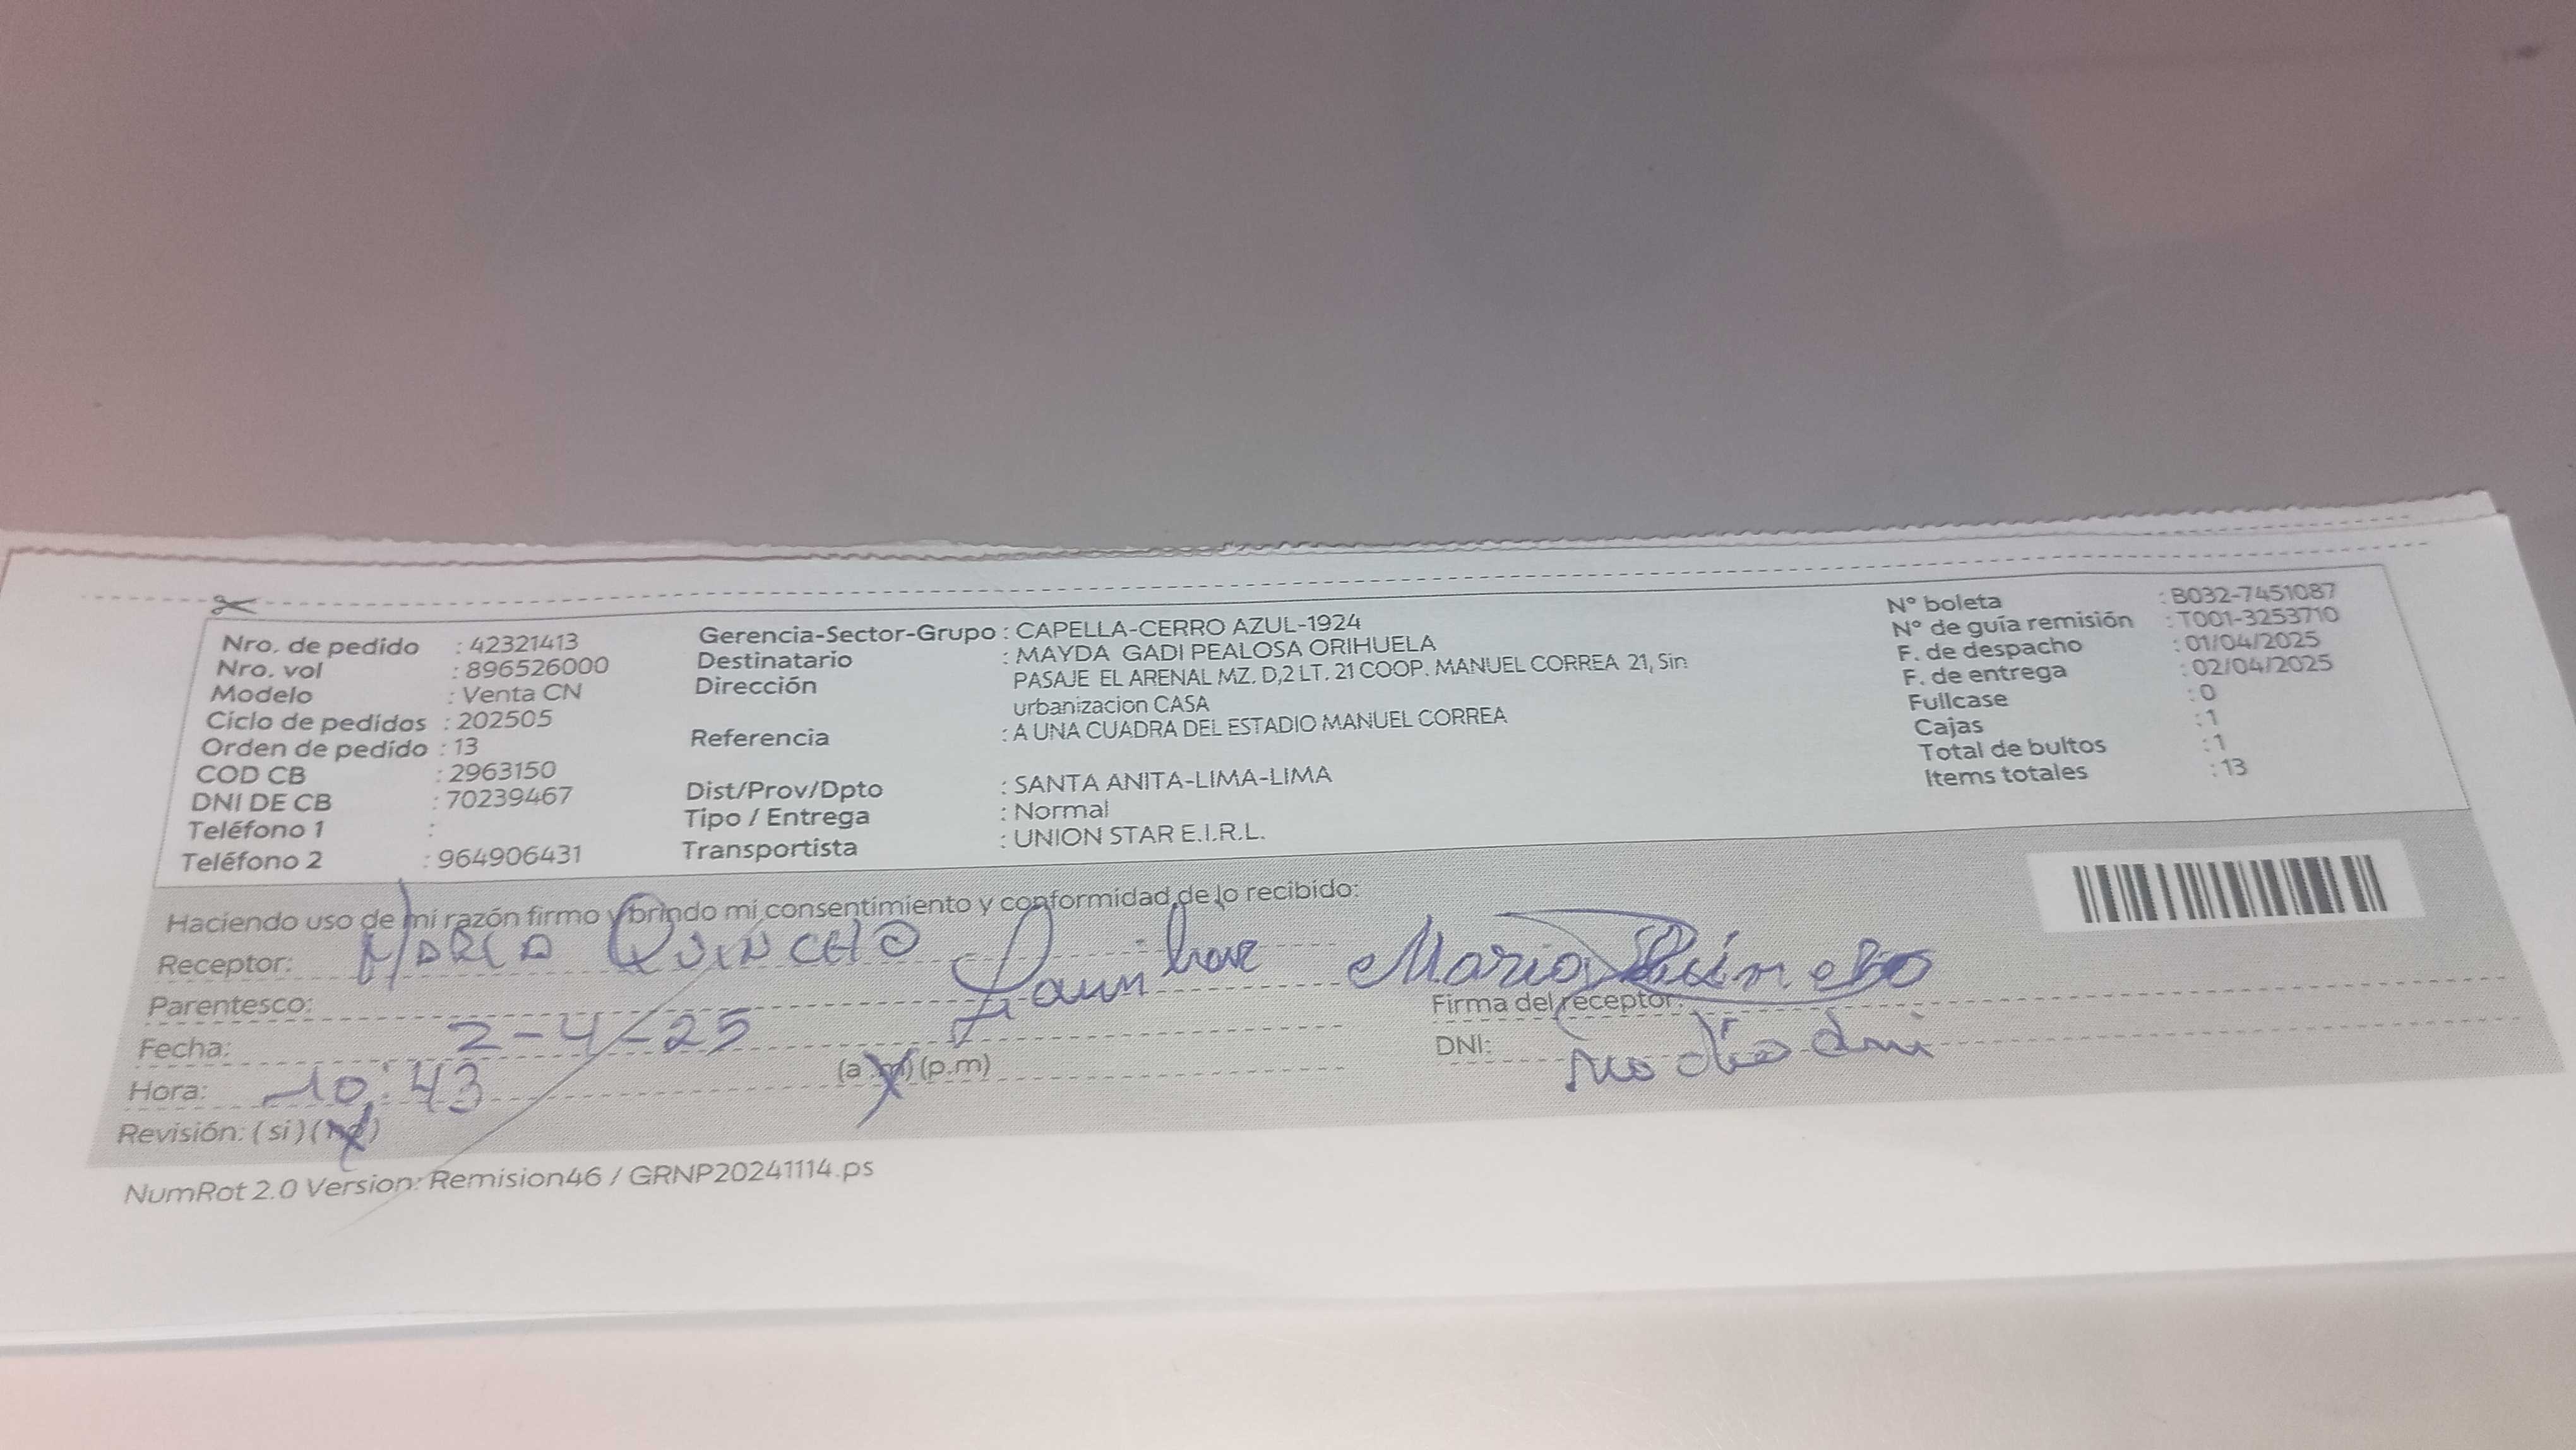 Nro. de pedido : 42321413
Nro. vol : 896526000
Modelo : Venta CN
Ciclo de pedidos : 202505
Orden de pedido : 13
COD CB : 2963150
DNI DE CB : 70239467
Teléfono 1 :
Teléfono 2 : 964906431
Gerencia-Sector-Grupo : CAPELLA-CERRO AZUL-1924
Destinatario : MAYDA GADI PEALOSA ORIHUELA
Dirección PASAJE EL ARENAL MZ. D,2 LT. 21 COOP. MANUEL CORREA 21, Sin
urbanizacion CASA
Referencia : A UNA CUADRA DEL ESTADIO MANUEL CORREA
Dist/Prov/Dpto : SANTA ANITA-LIMA-LIMA
Tipo / Entrega : Normal
Transportista : UNION STAR E.I.R.L.
N° boleta : B032-7451087
N° de guía remisión : T001-3253710
F. de despacho : 01/04/2025
F. de entrega : 02/04/2025
Fullcase : 0
Cajas : 1
Total de bultos : 1
Items totales : 13
Haciendo uso de mi razón firmo y brindo mi consentimiento y conformidad de lo recibido:
Receptor: MARIO QUINCHO
Parentesco:
Fecha: 2-4-25
Hora: 10:43 (a.m) (p.m)
Revisión: (si) (no)
Mario
Firma del receptor:
DNI: no dio dni
NumRot 2.0 Version: Remision46 / GRNP20241114.ps